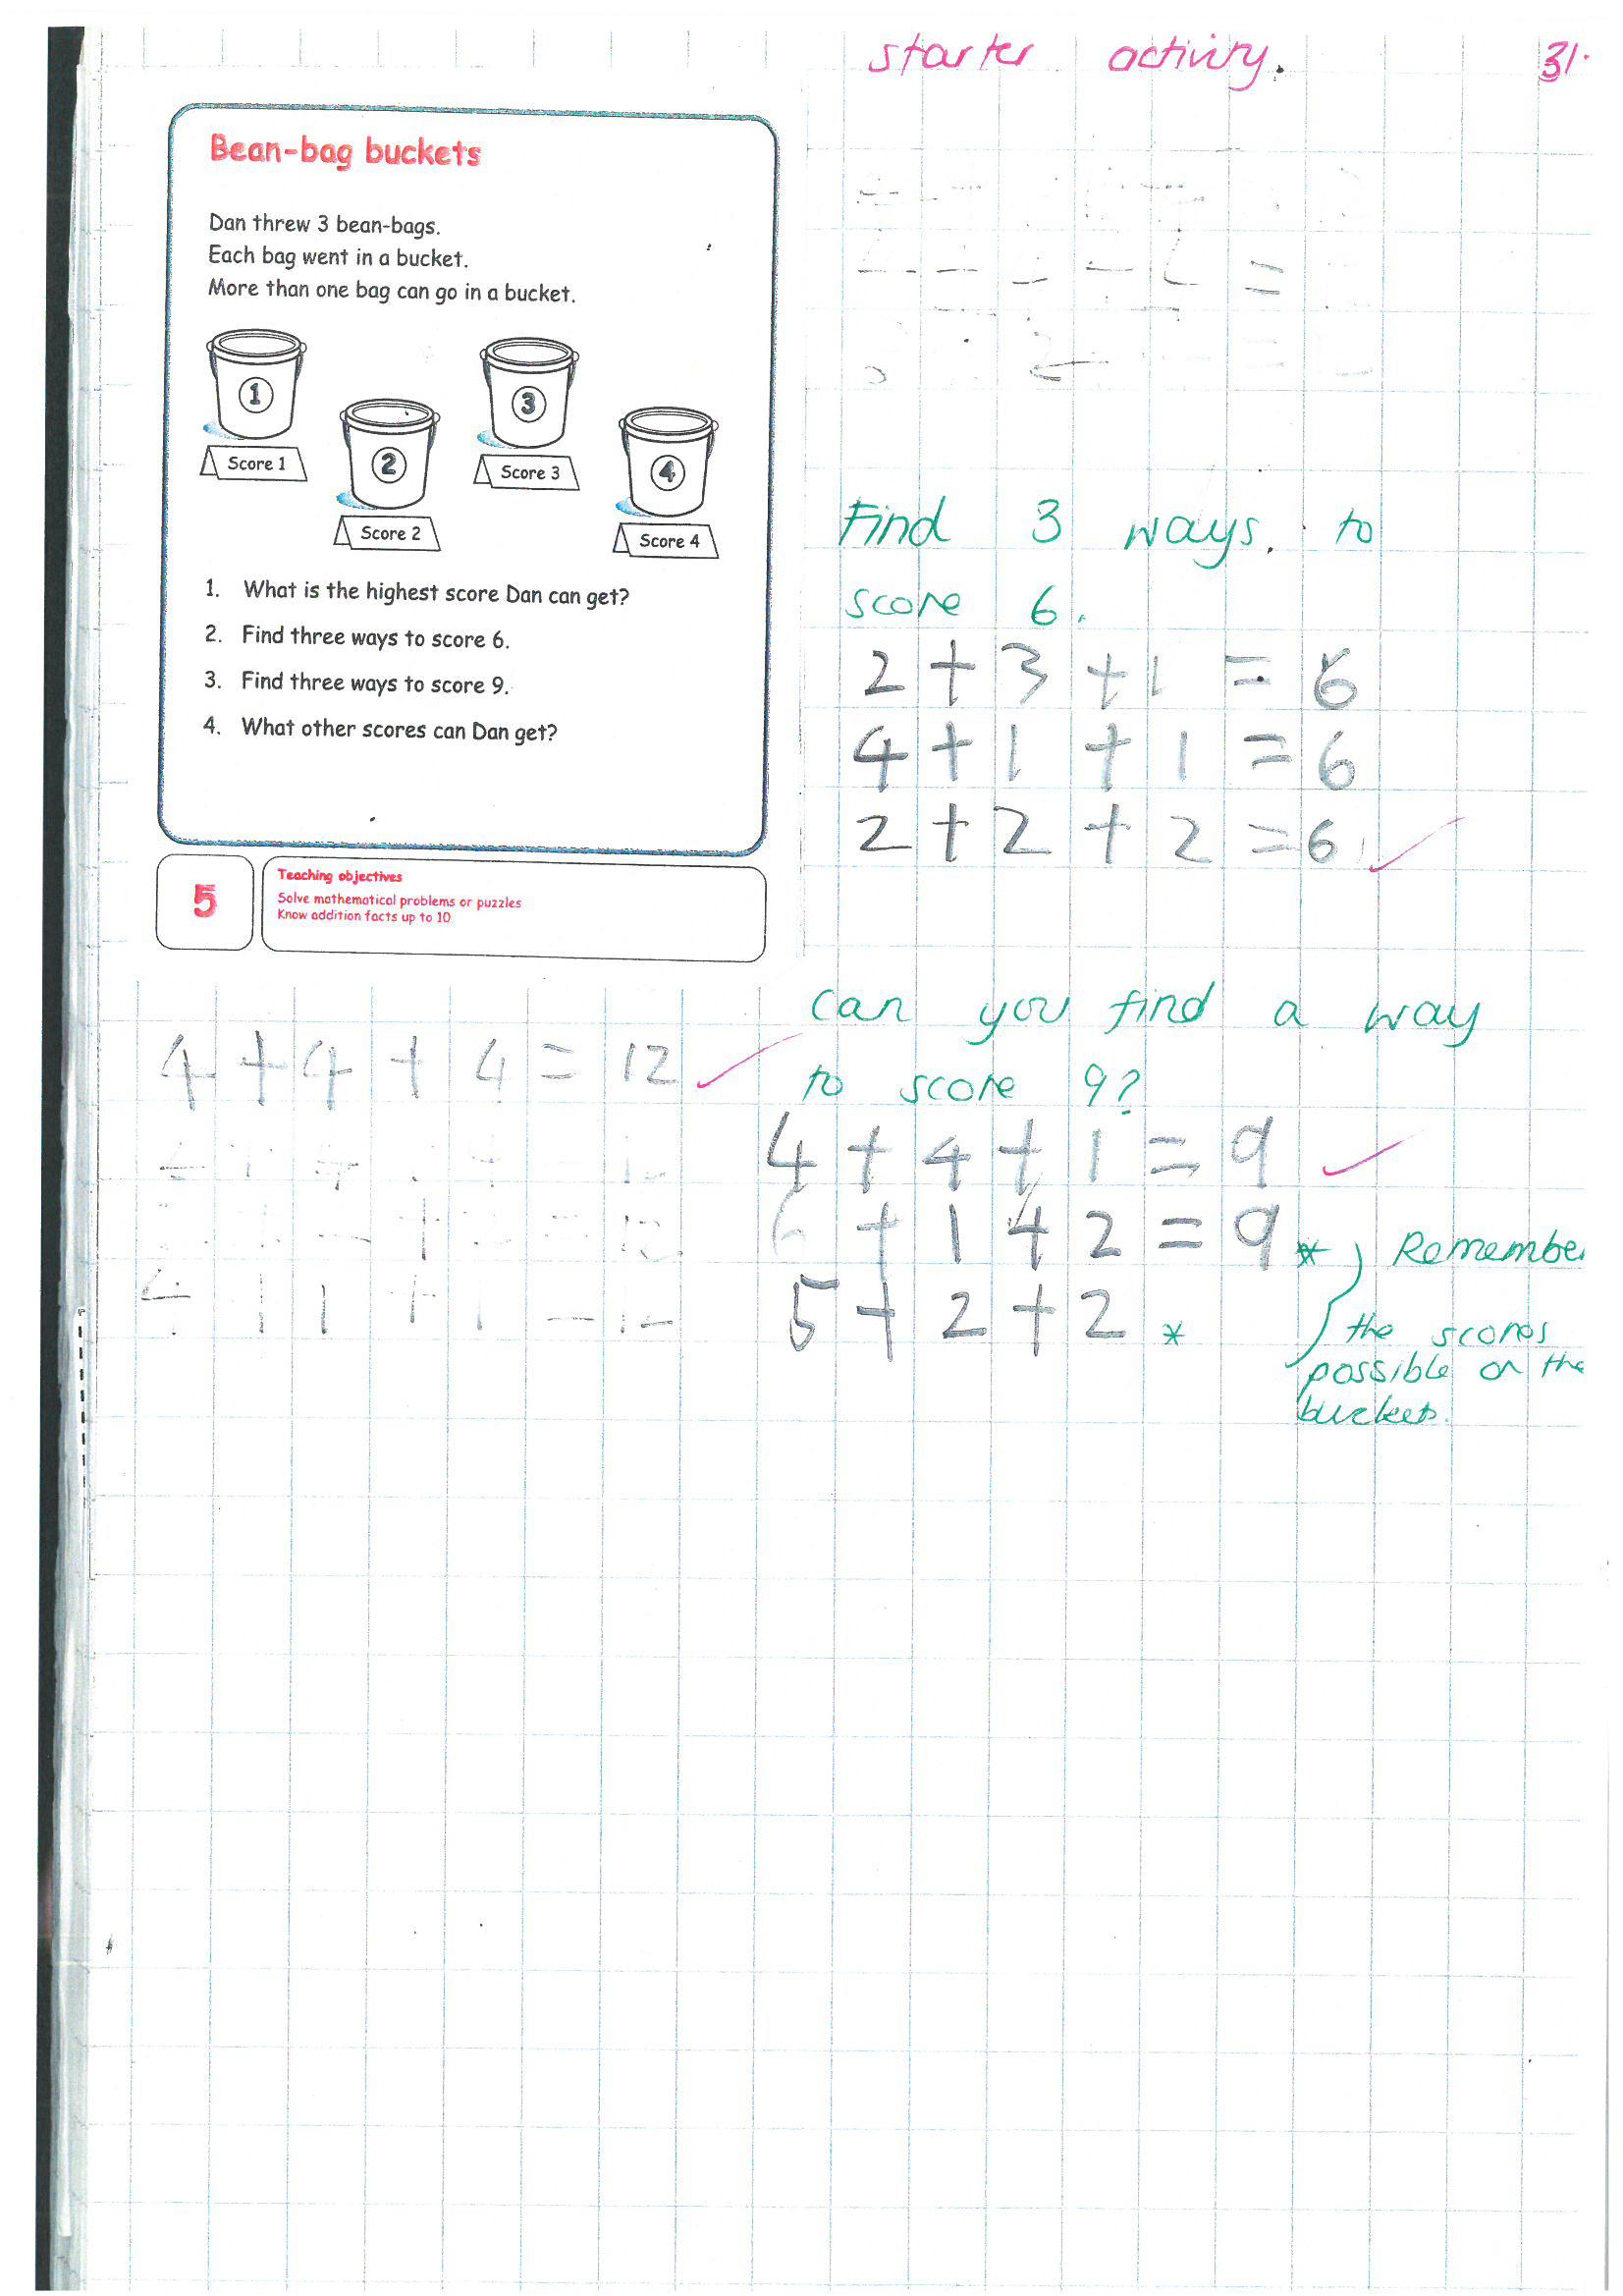 starter activity.
31.
Bean-bag buckets
Dan threw 3 bean-bags.
Each bag went in a bucket.
More than one bag can go in a bucket.
1
2
3
4
Score 1
Score 2
Score 3
Score 4
1. What is the highest score Dan can get?
2. Find three ways to score 6.
3. Find three ways to score 9.
4. What other scores can Dan get?
5
Teaching objectives
Solve mathematical problems or puzzles
Know addition facts up to 10
Find 3 ways. to
score 6.
2 + 3 + 1 = 6
4 + 1 + 1 = 6
2 + 2 + 2 = 6
4 + 4 + 4 = 12
can you find a way
to score 9?
4 + 4 + 1 = 9
6 + 1 + 2 = 9 *
5 + 2 + 2 *
Remember
the scores
possible on the
buckets.